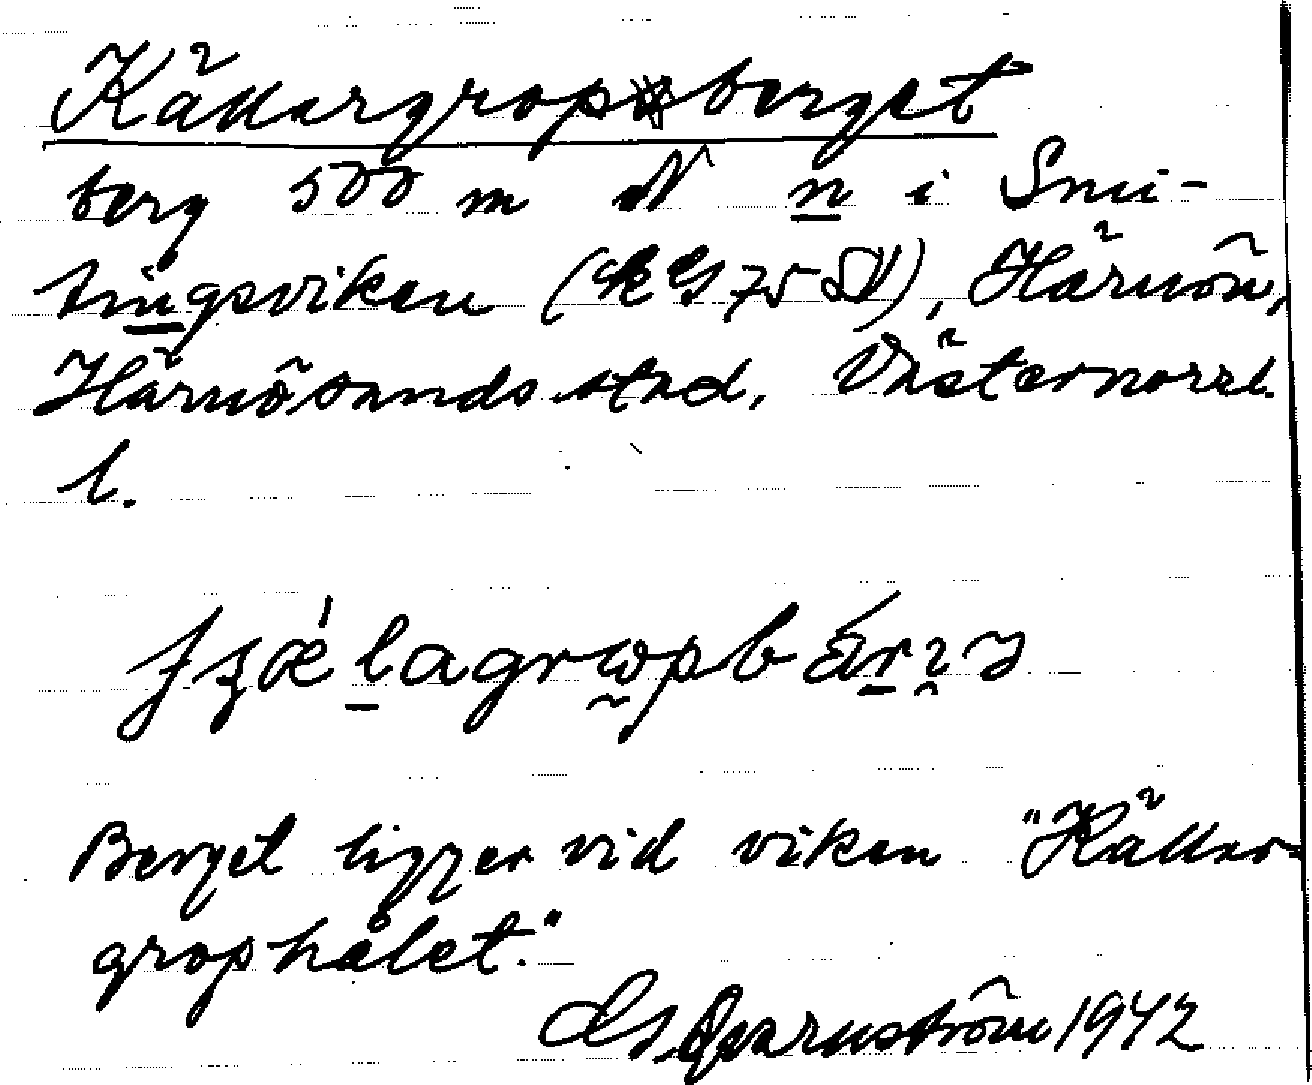 Källargropsberget
berg 500 m N n i Smi-
tingsviken (RG75 SV), Härnön,
Härnösands stad, Västernorrl.
l.
Berget ligger vid viken "Källar-
grophålet."
Qvarnström 1942